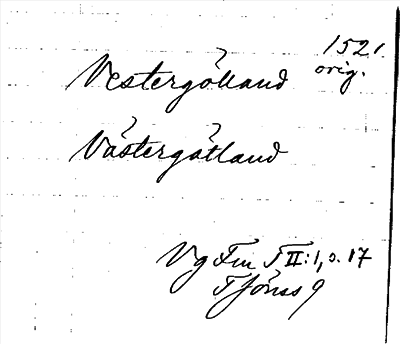 1521.
orig.
Vestergötland
Västergötland
Vg Fm T II:1, s. 17